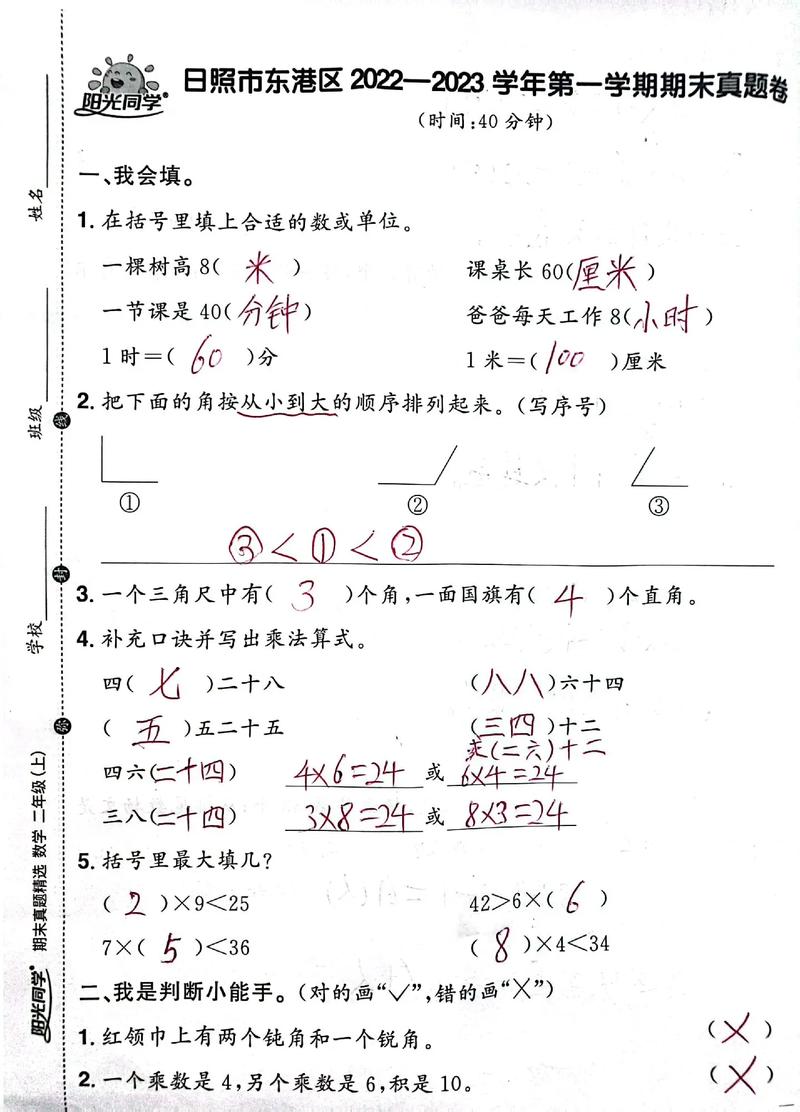 阳光同学®
日照市东港区 2022—2023 学年第一学期期末真题卷
(时间:40 分钟)
一、我会填。
1. 在括号里填上合适的数或单位。
一棵树高 8( 米 ) 课桌长 60(厘米 )
一节课是 40(分钟) 爸爸每天工作 8(小时 )
1 时=( 60 )分 1 米=( 100 )厘米
2. 把下面的角按从小到大的顺序排列起来。(写序号)
① ② ③
③<①<②
3. 一个三角尺中有( 3 )个角,一面国旗有( 4 )个直角。
4. 补充口诀并写出乘法算式。
四( 七 )二十八 (八八)六十四
( 五 )五二十五 (三四)十二
(二六)十二
四六(二十四) 4×6=24 或 6×4=24
三八(二十四) 3×8=24 或 8×3=24
5. 括号里最大填几?
( 2 )×9<25 42>6×( 6 )
7×( 5 )<36 ( 8 )×4<34
二、我是判断小能手。(对的画“✓”,错的画“×”)
1. 红领巾上有两个钝角和一个锐角。 (×)
2. 一个乘数是 4,另个乘数是 6,积是 10。 (×)
姓名
班级
学校
线
封
弥
阳光同学® 期末真题精选 数学 二年级(上)